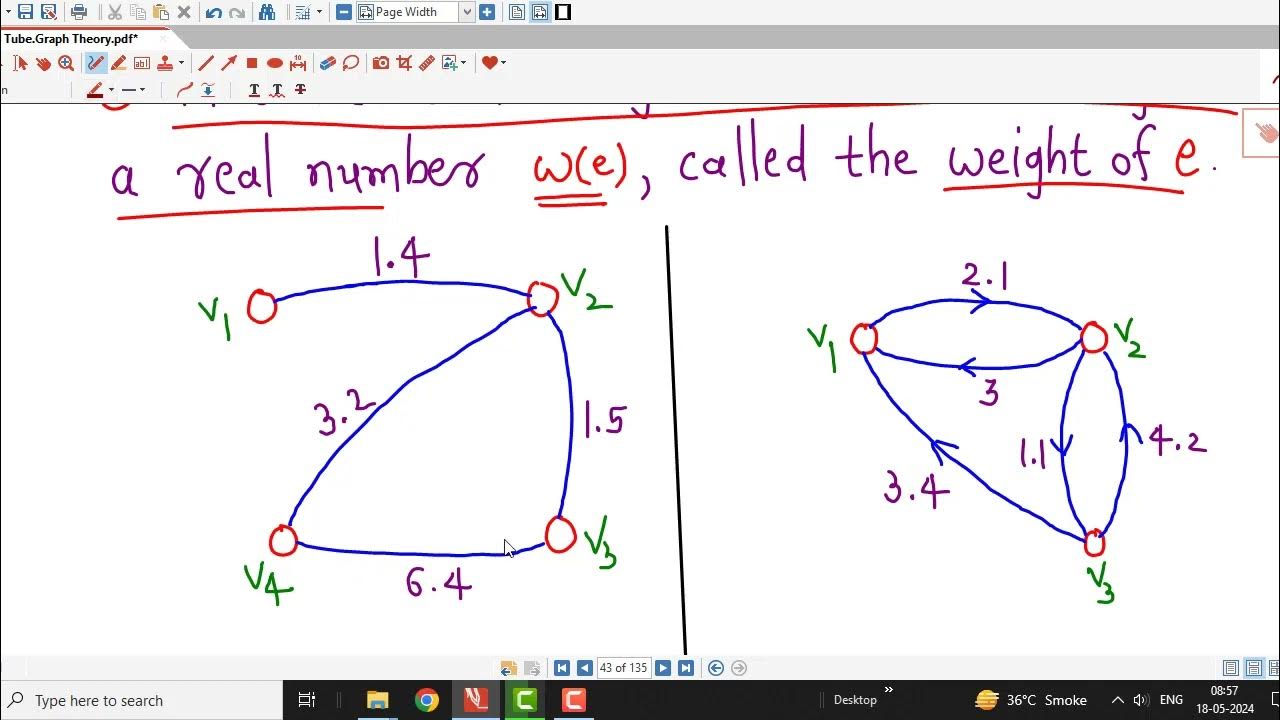 Page Width
Tube.Graph Theory.pdf*
a real number w(e), called the weight of e.
1.4
V1
V2
3.2
1.5
V4
6.4
V3
2.1
V1
V2
3
1.1
4.2
3.4
V3
43 of 135
Type here to search
Desktop
36°C Smoke
ENG
08:57
18-05-2024